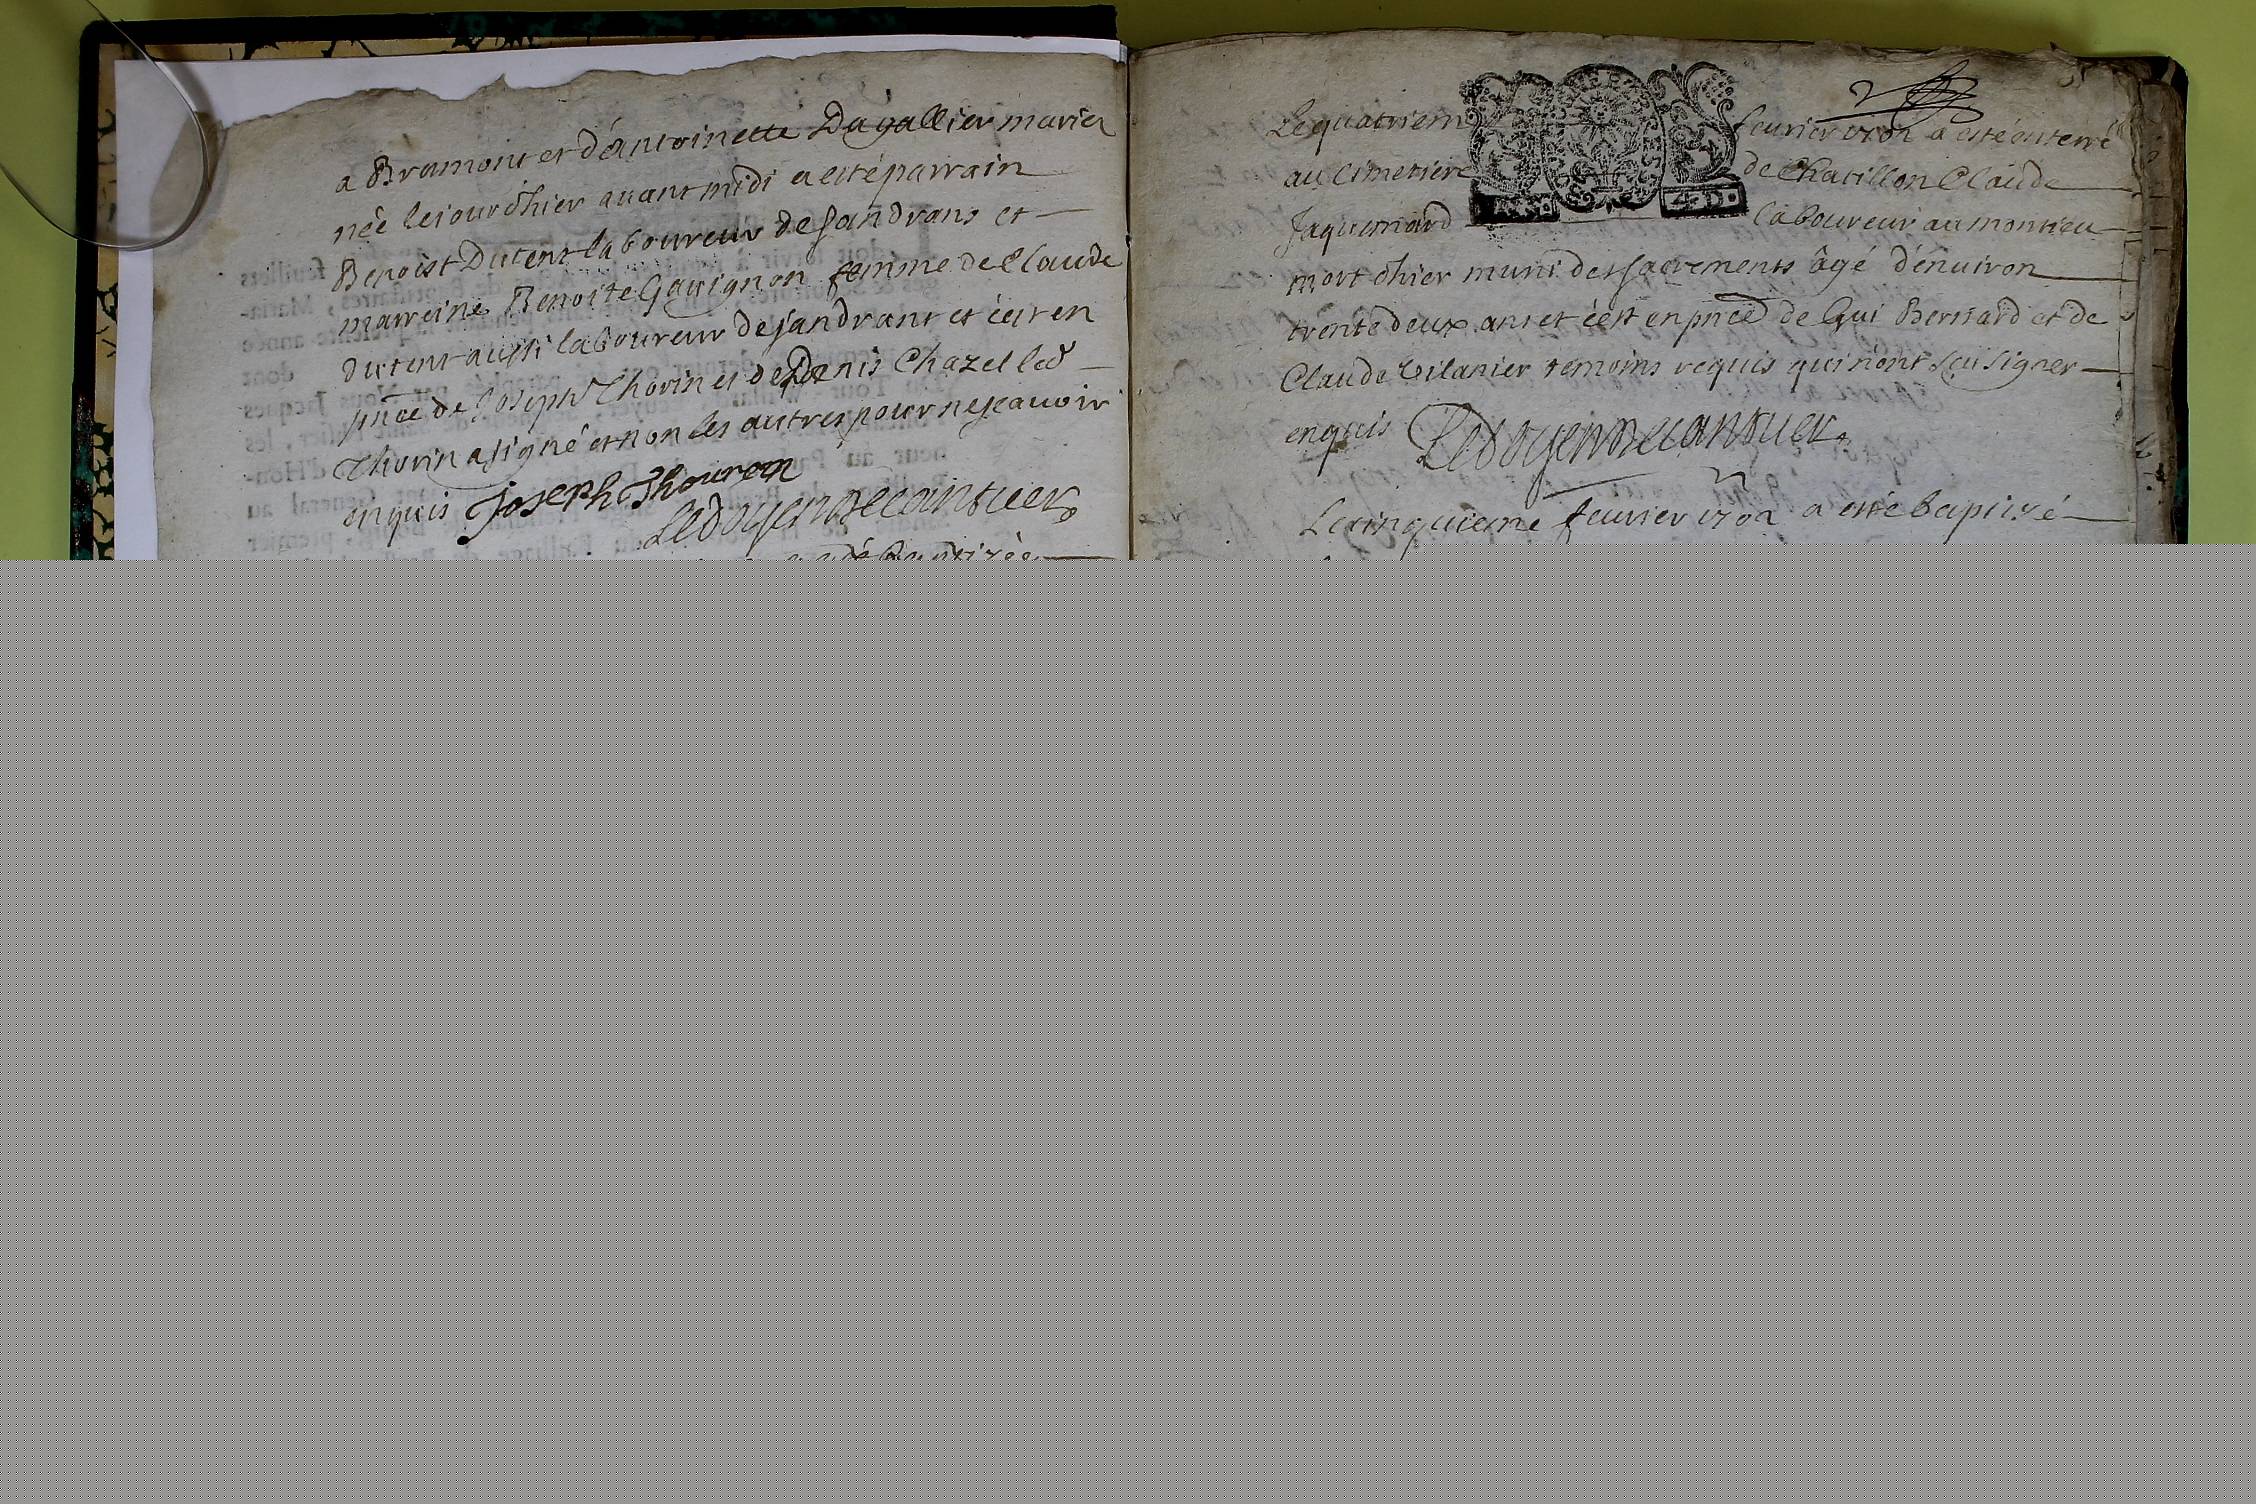 a Bramont et d'Antoinette Dagallier mariez
née lejour d'hier auant midi a esté parrain
Benoist Dutent laboureur de sandrans et
marreine Benoite Gavignon femme de Claude
dutent aussi laboureur de sandrans et c'est en
pnce de Joseph Thorin et de Denis Chazelle led
Thorin a signé et non les autres pour ne scauoir
enquis Joseph Thouren
Ledoyen
a esté baptizée
Le quatriem feurier 1702 a esté enterré
au Cimetiere de Chatillon Claude
Jaquemard laboureur au montieu
mort d'hier muni des sacrements âgé d'enuiron
trente deux ans et c'est en pnce de Gui Bernard et de
Claude Vilanier temoins requis qui n'ont sçu signer
enquis Ledoyen
4.D.
Le cinquieme feurier 1702 a esté baptizé